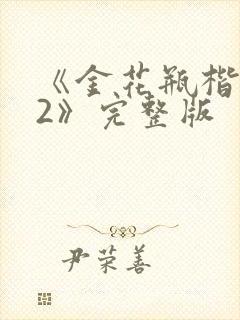 《金花瓶楷
2》完整版
尹荣善